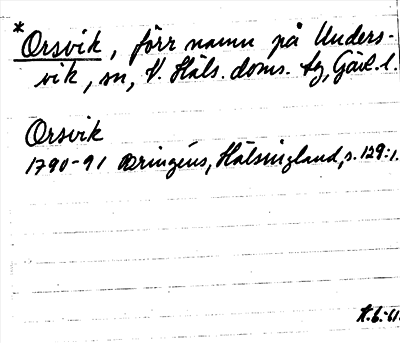 *Orsvik, förr namn på Unders-
vik, sn, V. Häls. doms. tg, Gävl. l.
Orsvik
1790-91 Broringius, Hälsingland, s. 129:1.